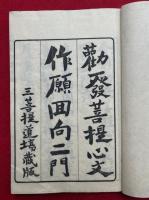 勸發菩提心文
作願回向二門
三菩提道場藏版